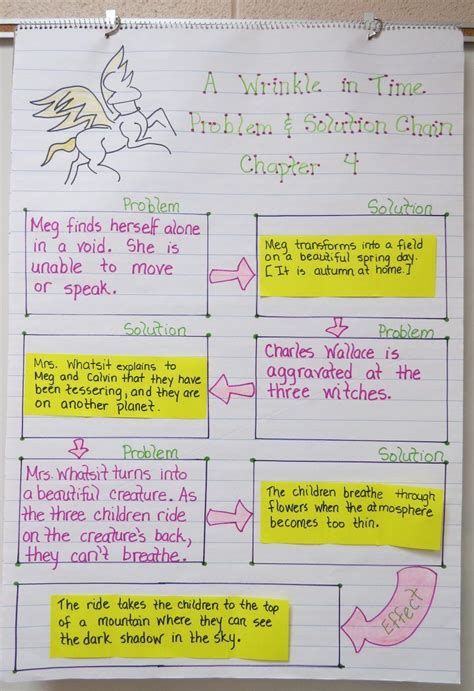 A Wrinkle in Time
Problem & Solution Chain
Chapter 4
Problem
Meg finds herself alone
in a void. She is
unable to move
or speak.
Solution
Meg transforms into a field
on a beautiful spring day.
[It is autumn at home.]
Problem
Charles Wallace is
aggravated at the
three witches.
Solution
Mrs. Whatsit explains to
Meg and Calvin that they have
been tessering, and they are
on another planet.
Problem
Mrs. Whatsit turns into
a beautiful creature. As
the three children ride
on the creature's back,
they can't breathe.
Solution
The children breathe through
flowers when the atmosphere
becomes too thin.
Effect
The ride takes the children to the top
of a mountain where they can see
the dark shadow in the sky.